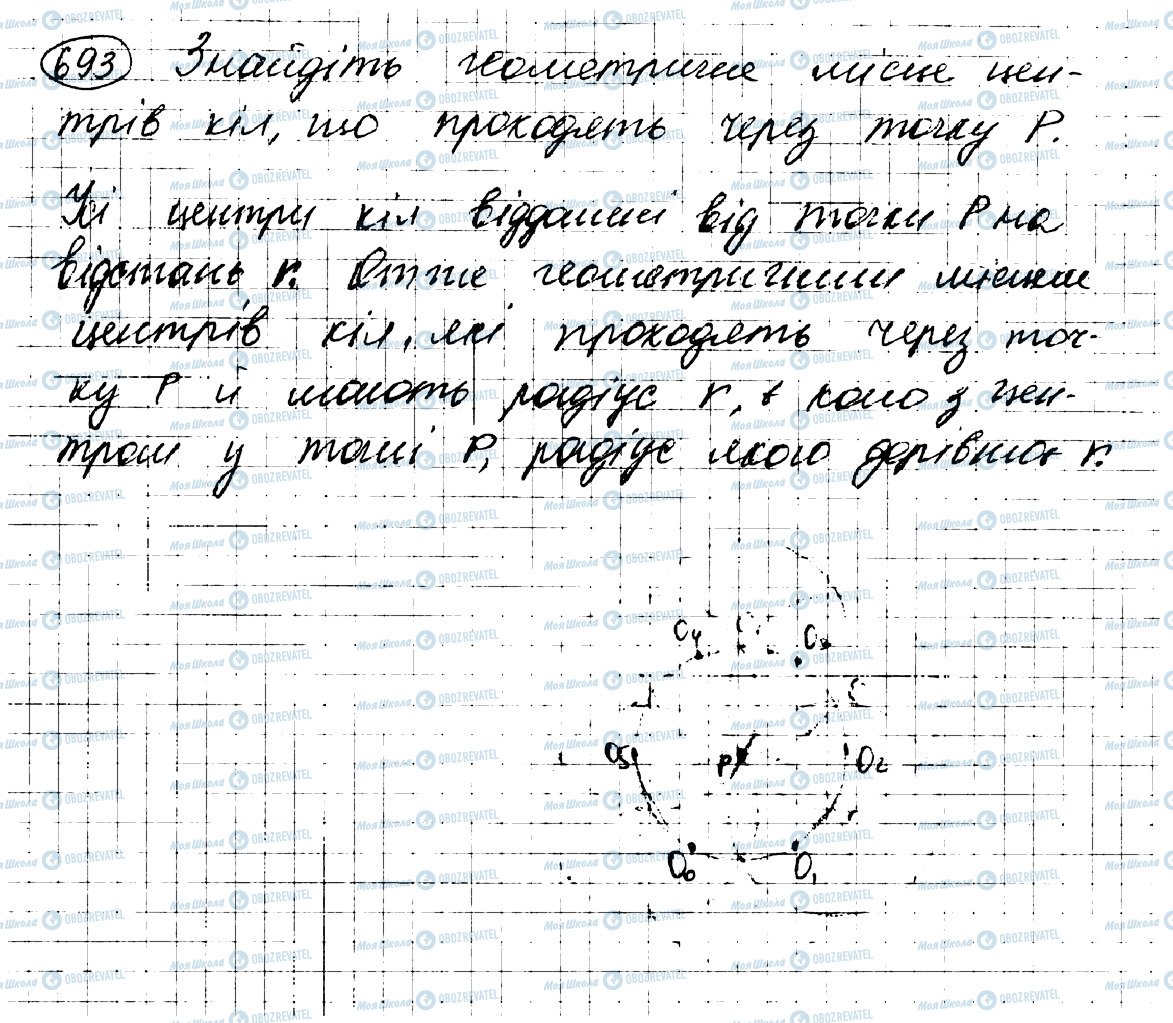 693 Знайдіть геометричне місце цен-
трів кіл, що проходять через точку P.
Усі центри кіл віддалені від точки P на
відстань r. Отже геометричним місцем
центрів кіл, які проходять через точ-
ку P й мають радіус r, є коло з цен-
тром у точці P, радіус якого дорівнює r.
O₄ O₃
O₅ P O₂
O₆ O₁
Моя Школа OBOZREVATEL